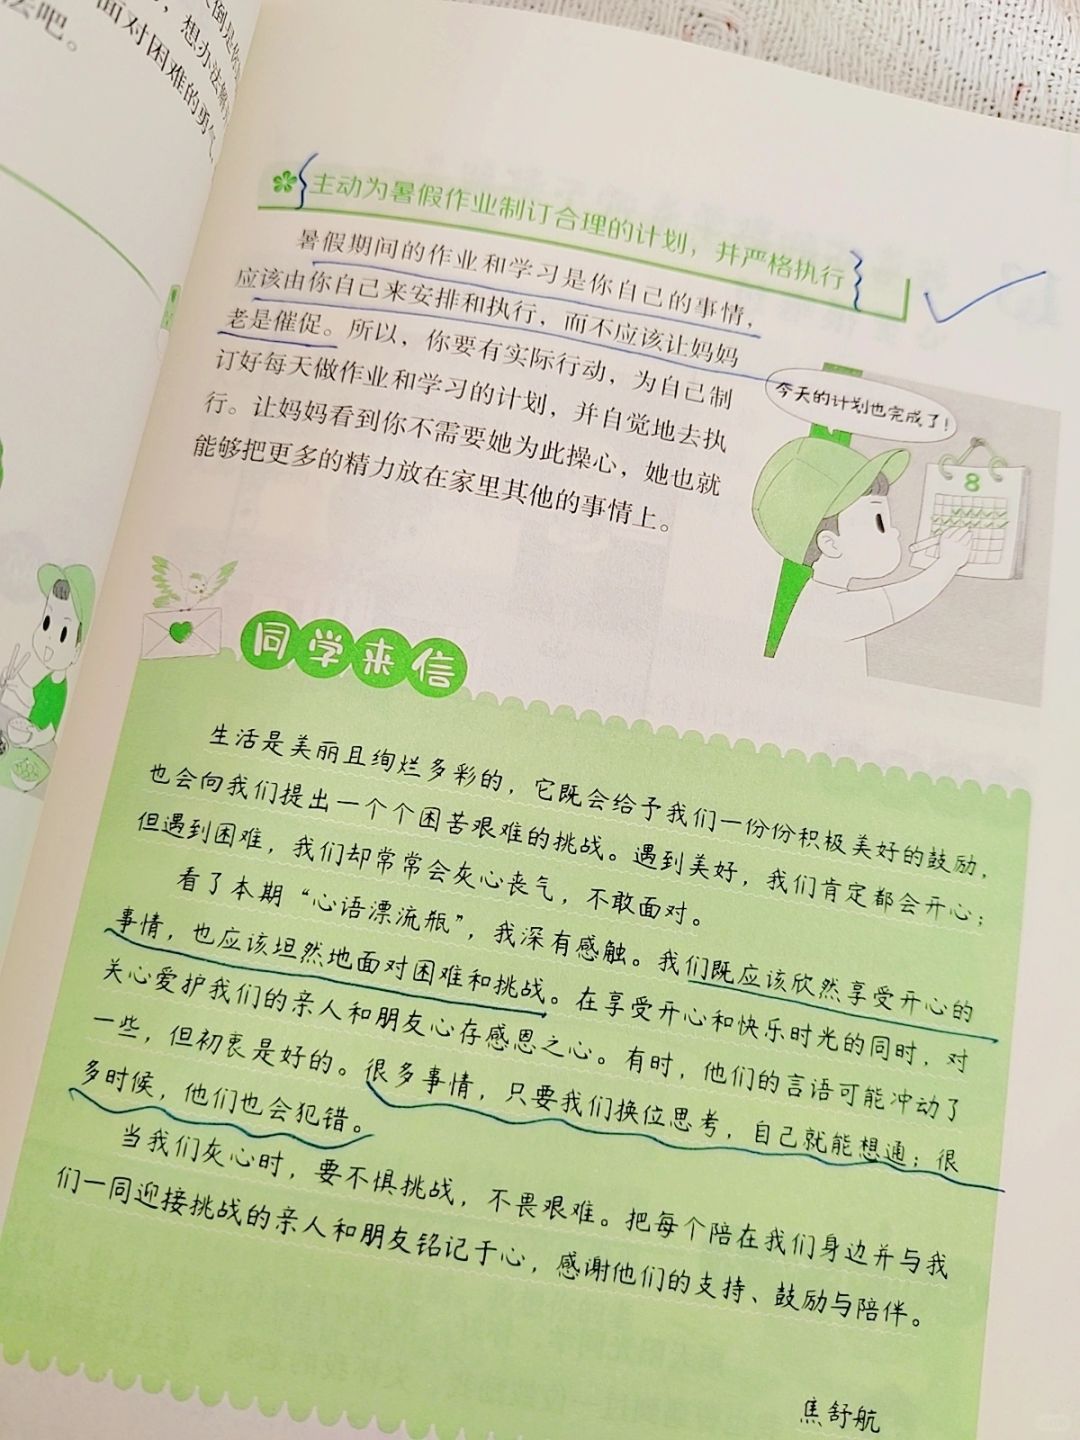 想办法解
面对困难的勇气，
去吧。
主动为暑假作业制订合理的计划，并严格执行
暑假期间的作业和学习是你自己的事情，
应该由你自己来安排和执行，而不应该让妈妈
老是催促。所以，你要有实际行动，为自己制
订好每天做作业和学习的计划，并自觉地去执
行。让妈妈看到你不需要她为此操心，她也就
能够把更多的精力放在家里其他的事情上。
今天的计划也完成了！
8
同学来信
生活是美丽且绚烂多彩的，它既会给予我们一份份积极美好的鼓励，
也会向我们提出一个个困苦艰难的挑战。遇到美好，我们肯定都会开心；
但遇到困难，我们却常常会灰心丧气，不敢面对。
看了本期“心语漂流瓶”，我深有感触。我们既应该欣然享受开心的
事情，也应该坦然地面对困难和挑战。在享受开心和快乐时光的同时，对
关心爱护我们的亲人和朋友心存感恩之心。有时，他们的言语可能冲动了
一些，但初衷是好的。很多事情，只要我们换位思考，自己就能想通；很
多时候，他们也会犯错。
当我们灰心时，要不惧挑战，不畏艰难。把每个陪在我们身边并与我
们一同迎接挑战的亲人和朋友铭记于心，感谢他们的支持、鼓励与陪伴。
焦舒航